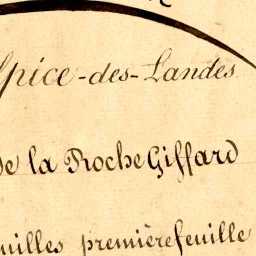 Spice-des-Landes
de la Roche Giffard
uilles première feuille